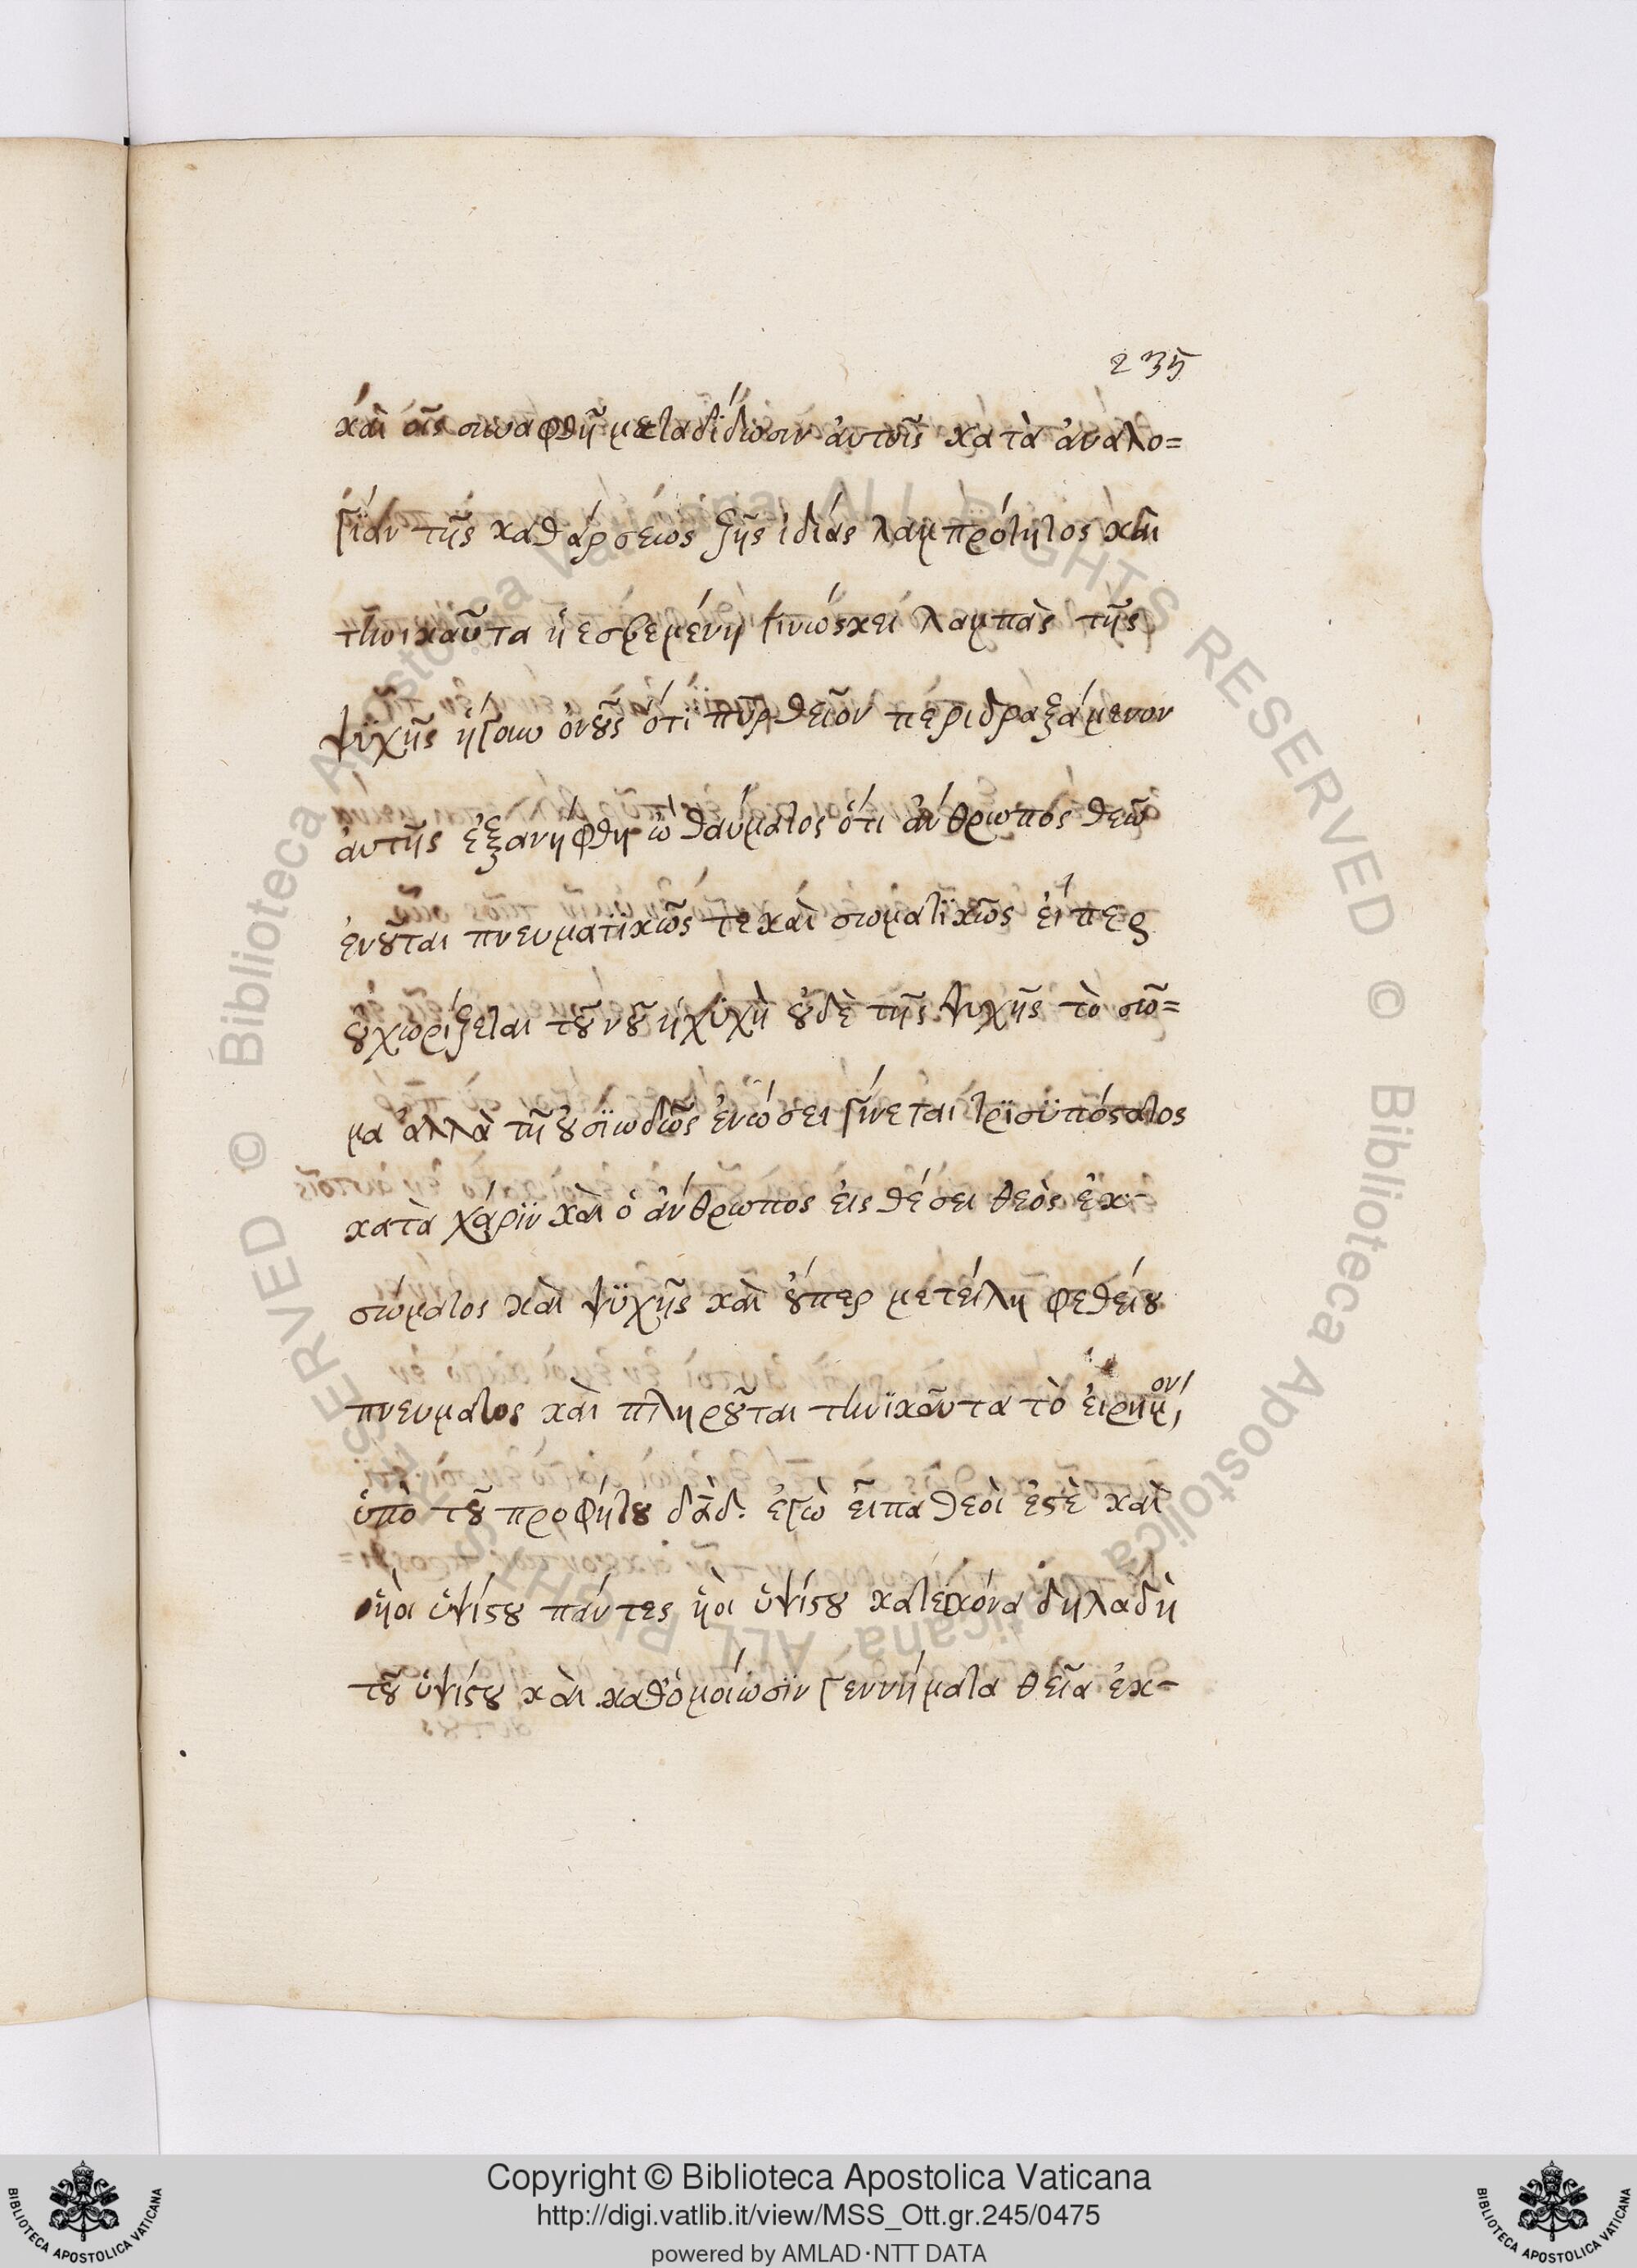 235
καὶ οἷς συναφθῆ μεταδίδωσιν ἀυτοῖς κατὰ ἀναλο=
γίαν τῆς καθάρσεως ξῆς ἰδίας λαμπρότητος καὶ
τηνικαῦτα ἡ εσβεμένη γινώσκει λαμπὰς τῆς
ψϋχῆς ἤγουν ὁνοῦς ὅτι πῦρ θεῖον περιδραξάμενον
ἀυτῆς ἐξανήφθη ὢ θαύματος ὅτι ἄνθρωπος θεῶ
ἑνοῦται πνευματϊκῶς τε καὶ σωματϊκῶς ἐίπερ
οὐχωρίζεται τοῦ νοῦ ἡψϋχὴ οὐδὲ τῆς ψυχῆς τὸ σῶ=
μα ἀλλὰ τῆ οὐσϊωδῶς ἑνώσει γίνεται τρϊσϋπόστατος
κατὰ χάρϊν καὶ ὁ ἄνθρωπος ἐις θέσει θεὸς ἐκ-
σώματος καὶ ψϋχῆς καὶ οὗπερ μετείληφε θείου
πνευματος καὶ πληροῦται τηνϊκαῦτα τὸ ἐιρημον,
ὑπὸ τοῦ προφήτου δᾱδ. ἐγὼ εἶπα θεοὶ ἐστὲ καὶ
ὑἱοι ὑψίστου πάντες ὑἱοι ὑψίστου κατεικόνα δηλαδὴ
τοῦ ὑψίστου καὶ καθ'ὁμοίωσϊν γεννήματα θεῖα ἐκ-
Copyright © Biblioteca Apostolica Vaticana
http://digi.vatlib.it/view/MSS_Ott.gr.245/0475
powered by AMLAD·NTT DATA
BIBLIOTECA APOSTOLICA VATICANA
BIBLIOTECA APOSTOLICA VATICANA
© Biblioteca Apostolica Vaticana ALL RIGHTS RESERVED
© Biblioteca Apostolica Vaticana ALL RIGHTS RESERVED